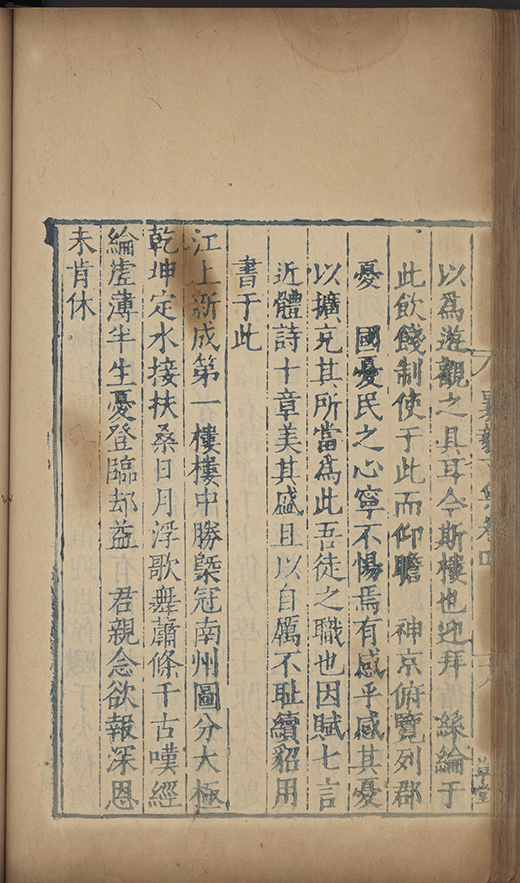 以爲遊觀之具耳今斯樓也迎拜　絲綸于
此飲餞制使于此而仰瞻　神京俯覽列郡
憂　國憂民之心寧不惕焉有感乎感其憂
以擴充其所當爲此吾徒之職也因賦七言
近體詩十章美其盛且以自厲不耻續貂用
書于此
江上新成第一樓樓中勝槩冠南州圖分大極
乾坤定水接扶桑日月浮歌舞蕭條千古嘆經
綸虛薄半生憂登臨却益　君親念欲報深恩
未肯休